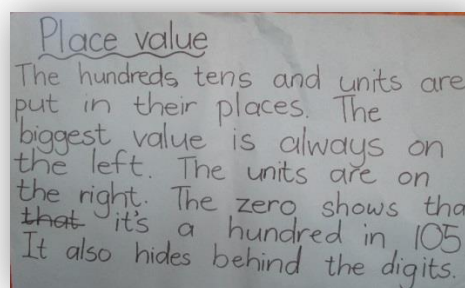 Place value
The hundreds tens and units are
put in their places. The
biggest value is always on
the left. The units are on
the right. The zero shows tha
that it's a hundred in 105
It also hides behind the digits.